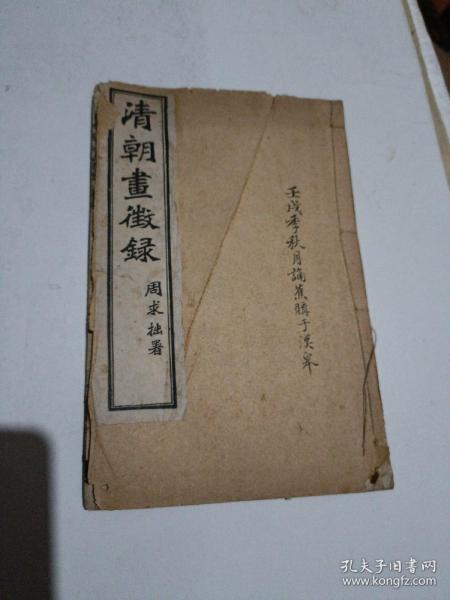 清朝畫徵録
周求拙署
壬戌季秋月誦蕉購于漢皋
孔夫子旧书网
www.kongfz.com